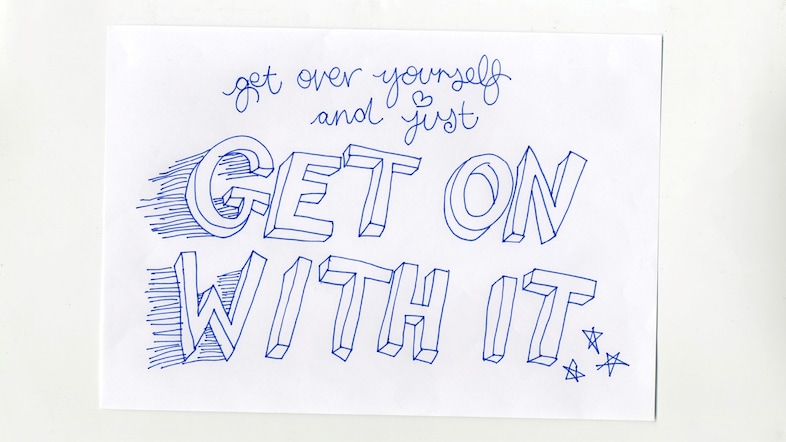 get over yourself
and just
GET ON
WITH IT.